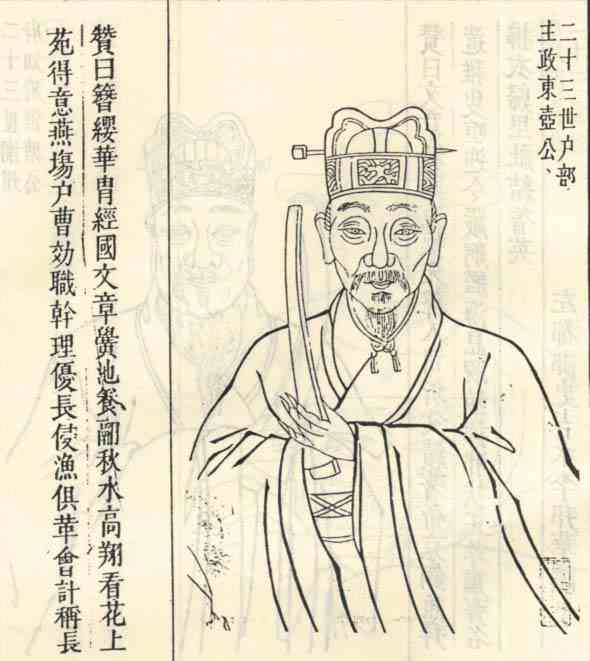 二十三世户部
主政東壺公、
贊曰簪纓華胄經國文章黌池養翮秋水高翔看花上
苑得意燕塲户曹効職幹理優長侵漁俱革會計稱長